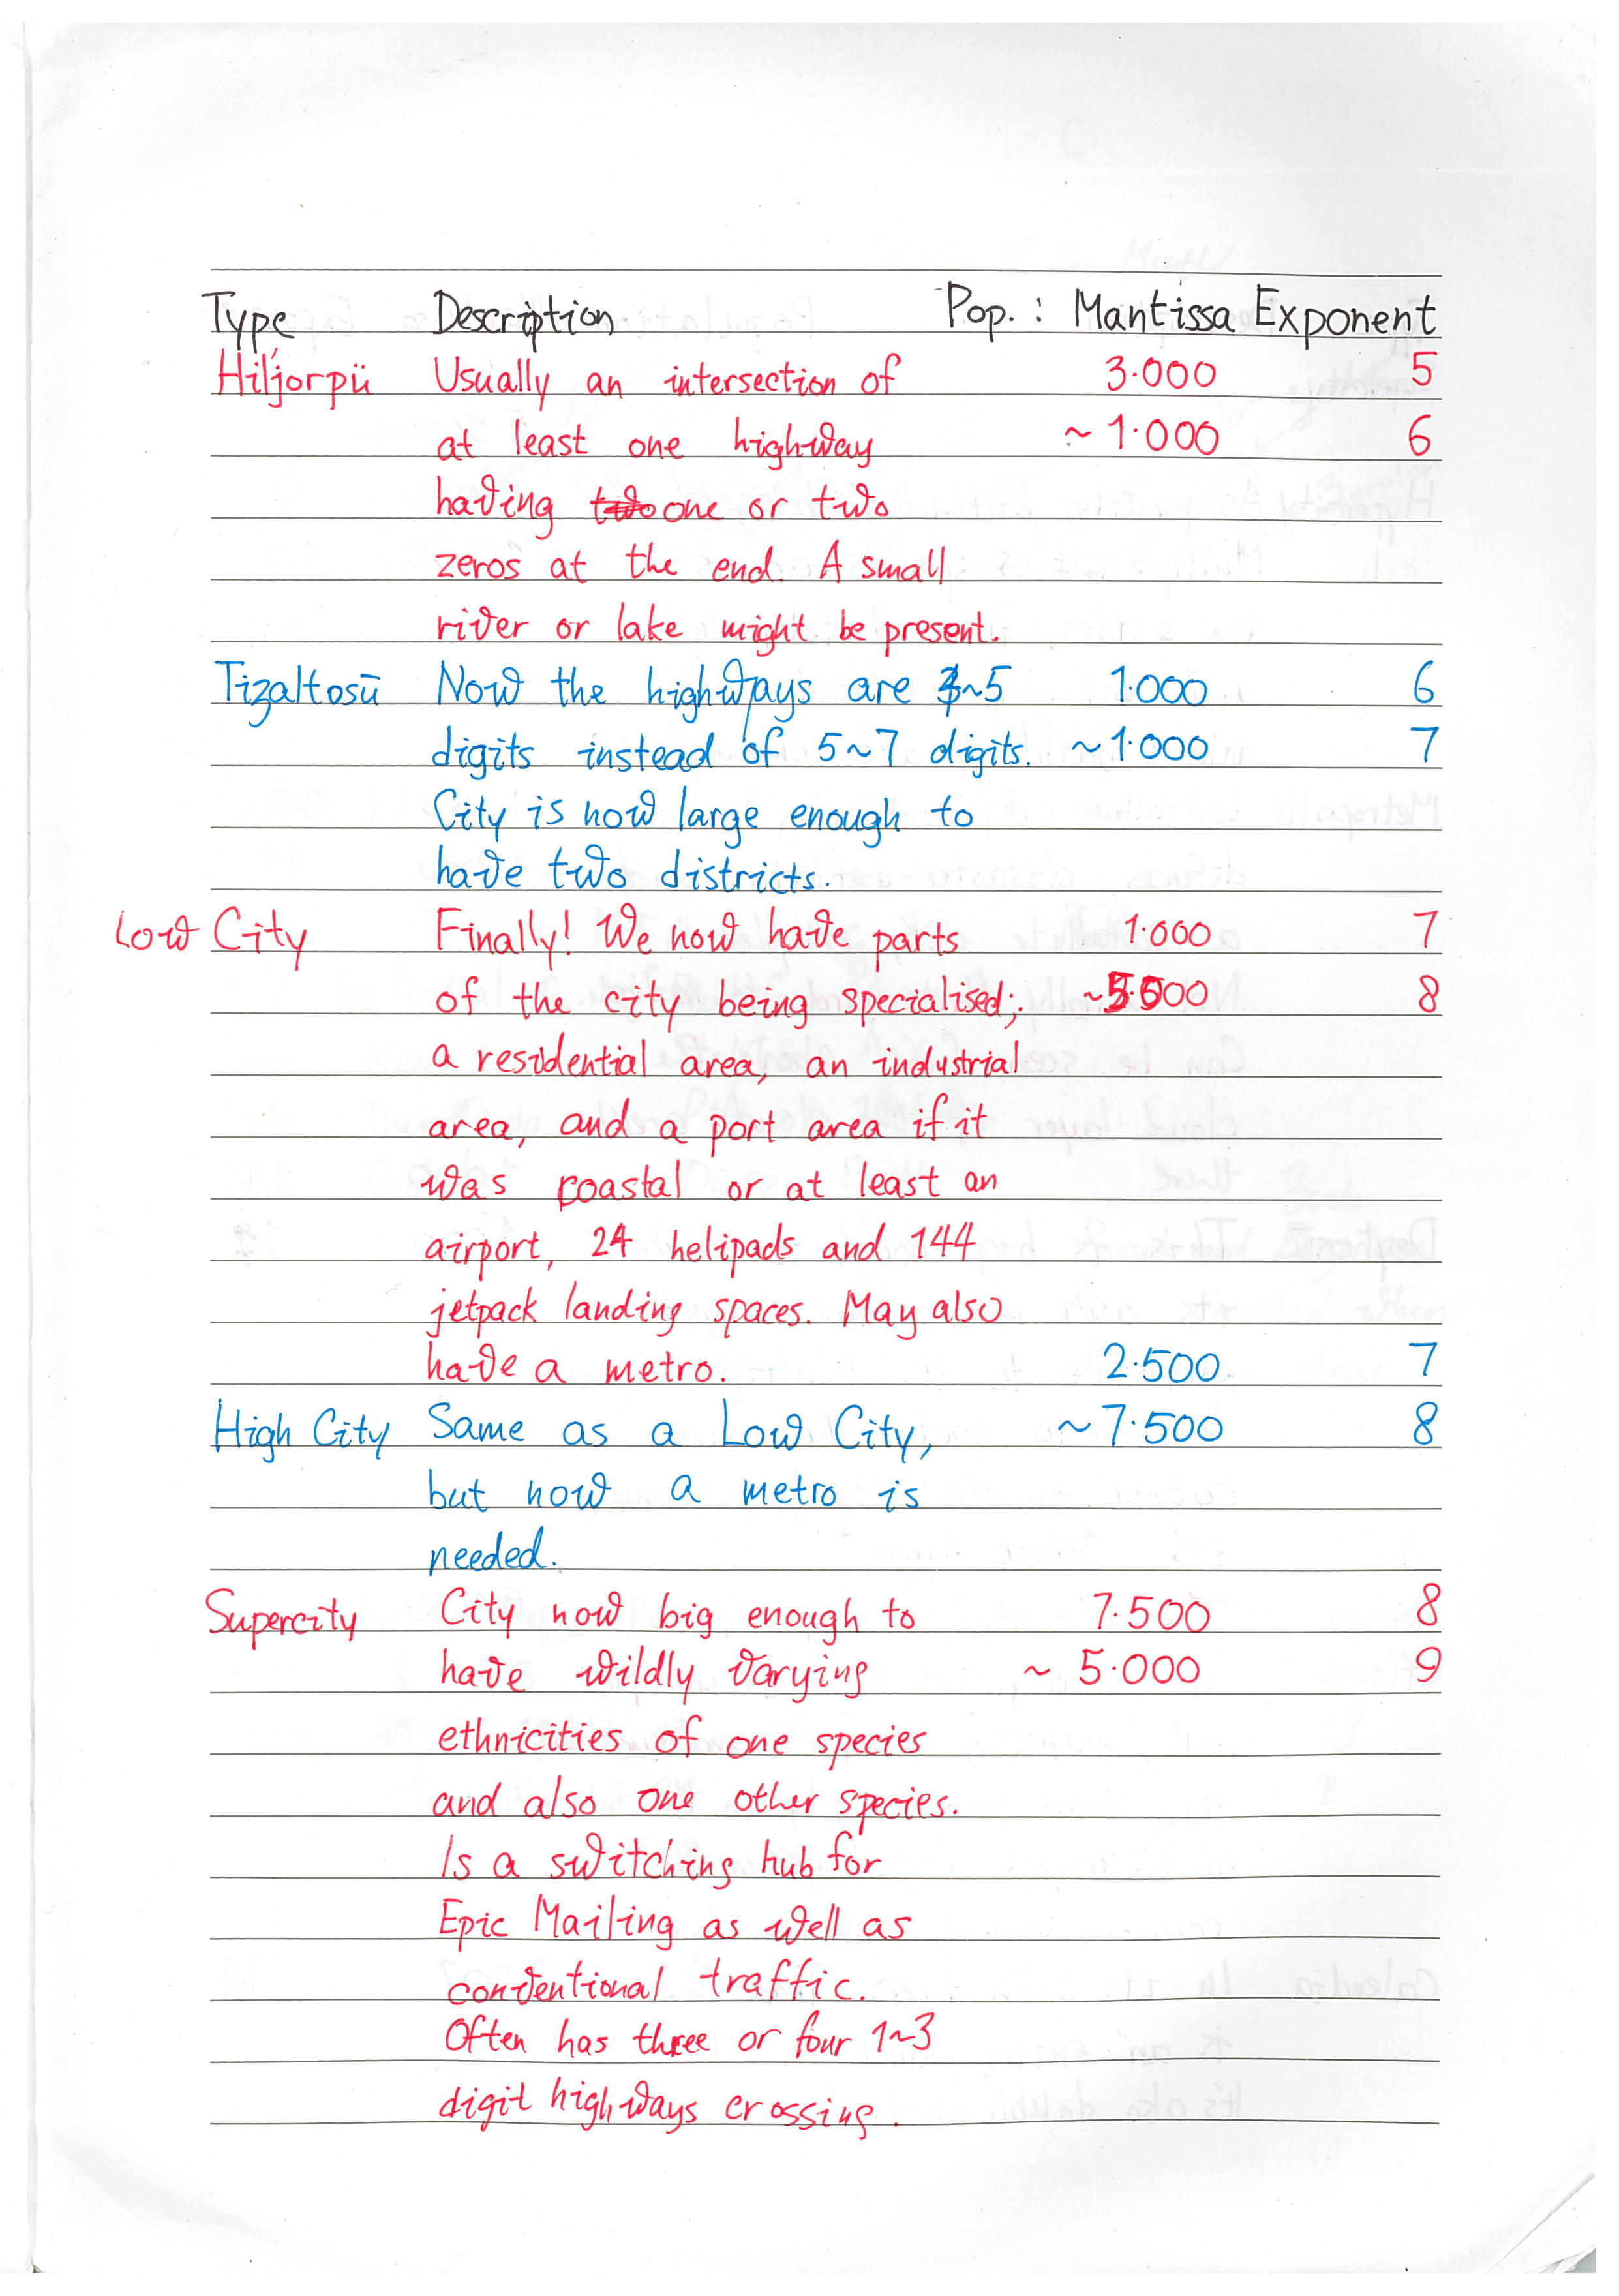 Type Description Pop. : Mantissa Exponent
Hiljorpü Usually an intersection of 3·000 5
at least one highway ~ 1·000 6
having two one or two
zeros at the end. A small
river or lake might be present.
Tizaltosū Now the highways are 3~5 1·000 6
digits instead of 5~7 digits. ~1·000 7
City is now large enough to
have two districts.
Low City Finally! We now have parts 1·000 7
of the city being specialised; ~5·000 8
a residential area, an industrial
area, and a port area if it
was coastal or at least an
airport, 24 helipads and 144
jetpack landing spaces. May also
have a metro. 2·500 7
High City Same as a Low City, ~7·500 8
but now a metro is
needed.
Supercity City now big enough to 7·500 8
have wildly varying ~ 5·000 9
ethnicities of one species
and also one other species.
Is a switching hub for
Epic Mailing as well as
conventional traffic.
Often has three or four 1~3
digit highways crossing.